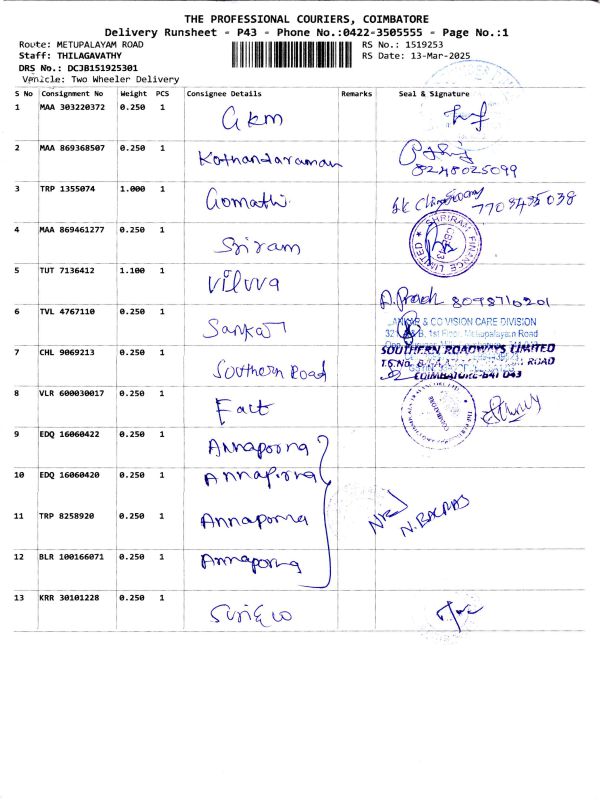 THE PROFESSIONAL COURIERS, COIMBATORE
Delivery Runsheet - P43 - Phone No.:0422-3505555 - Page No.:1
Route: METUPALAYAM ROAD
RS No.: 1519253
Staff: THILAGAVATHY
RS Date: 13-Mar-2025
DRS No.: DCJB151925301
Vehicle: Two Wheeler Delivery
S No Consignment No Weight PCS Consignee Details Remarks Seal & Signature
1 MAA 303220372 0.250 1 GKM
2 MAA 869368507 0.250 1 Kothandaraman 8248025099
3 TRP 1355074 1.000 1 Gomathi
4 MAA 869461277 0.250 1 Sriram SHRIRAM FINANCE LIMITED
5 TUT 7136412 1.100 1 Vilvva 8098710201
6 TVL 4767110 0.250 1 Sankar & CO VISION CARE DIVISION
1st Floor, Road
7 CHL 9069213 0.250 1 Southern Road SOUTHERN ROADWAYS LIMITED
T.S.NO. ROAD
COIMBATORE-641 043
8 VLR 600030017 0.250 1 Fact
9 EDQ 16060422 0.250 1 Annaporna
10 EDQ 16060420 0.250 1 Annaporna
11 TRP 8258920 0.250 1 Annaporna
12 BLR 100166071 0.250 1 Annaporna
13 KRR 30101228 0.250 1